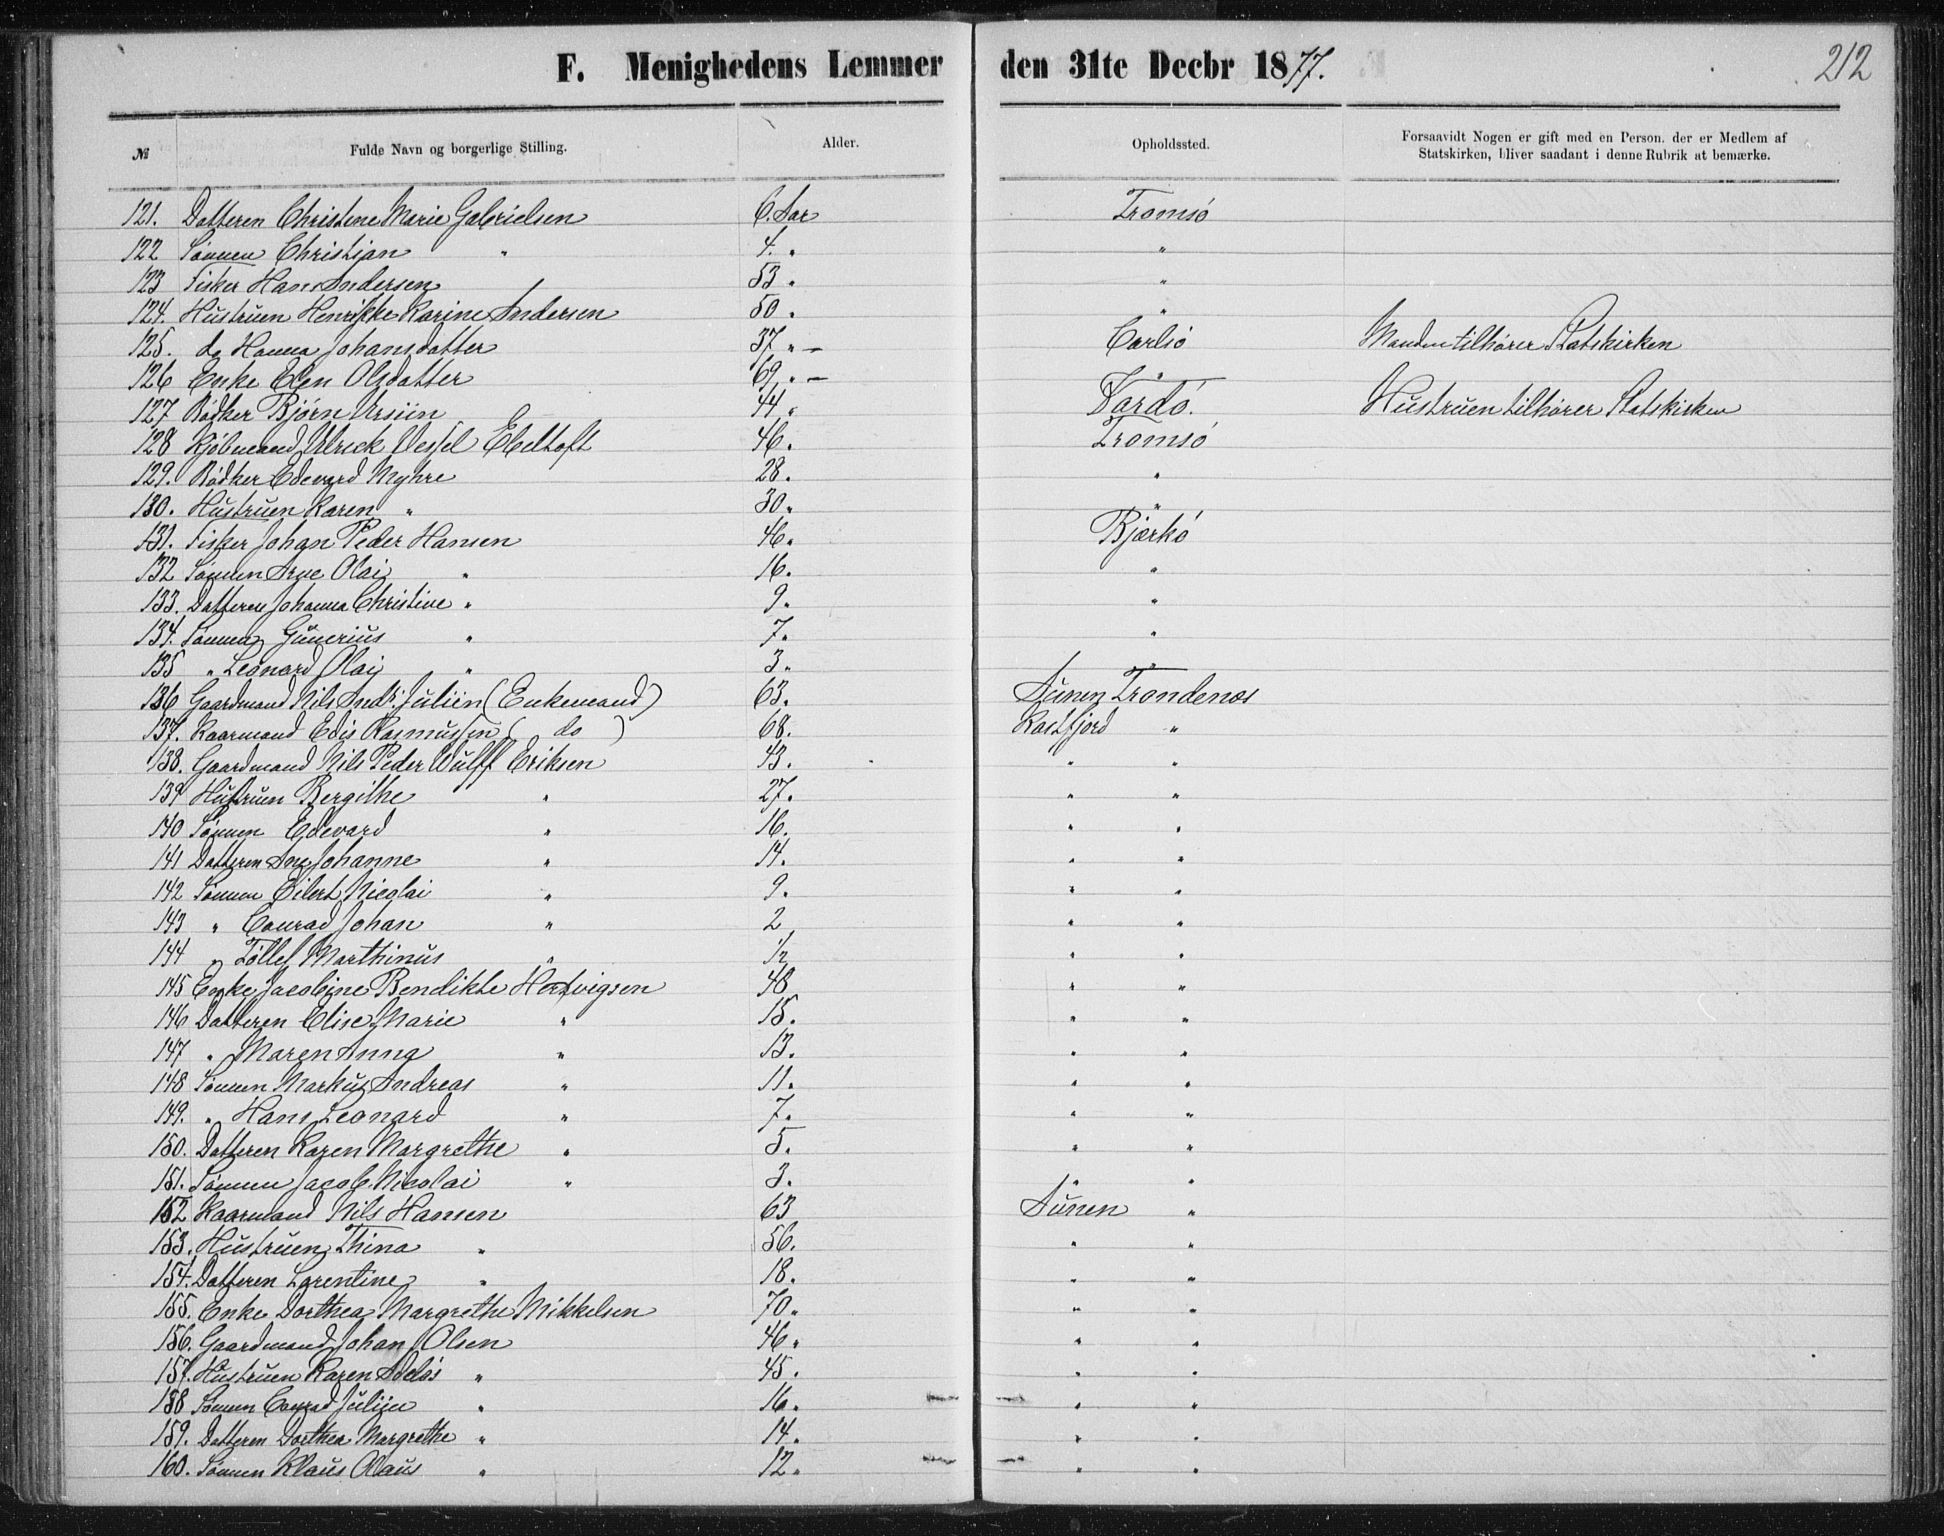 F. Menighedens Lemmer den 31te Decbr 1877. 212
№ Fulde Navn og borgerlige Stilling. Alder. Opholdssted. Forsaavidt Nogen er gift med en Person, der er Medlem af
Statskirken, bliver saadant i denne Rubrik at bemærke.
121. Datteren Christine Marie Gabrielsen 6. Aar Tromsø
122 Sønnen Christian " 4. " "
123 Fisker Hans Andersen 53 " "
124. Hustruen Henrikke Karine Andersen 50 " "
125. do Hanna Johansdatter 37 " — Carlsø Manden tilhører Statskirken
126 Enke Elen Olsdatter 69 " — "
127 Bødker Bjørn Ursiin 44 " Vardø. Hustruen tilhører Statskirken
128 Kjøbmand Ulrick Vessel Ebeltoft 46. Tromsø
129. Bødker Edevard Myhre 28. "
130. Hustruen Karen " 30. "
131. Fisker Johan Peder Hansen 46. Bjærkø
132 Sønnen Arne Olai " 16. "
133. Datteren Johanna Christine " 9. "
134. Sønnen Gunerius " 7. "
135 " Leonard Olai " 3. "
136 Gaardmand Nils Andr. Juliin (Enkemand) 63. Aunen Trondenæs
137. Kaarmand Edis Rasmussen ( do ) 68. Kastfjord "
138. Gaardmand Nils Peder Wulff Eriksen 43. " "
139 Hustruen Bergithe " 27. " "
140 Sønnen Edevard " 16. " "
141 Datteren Ane Johanne " 14. " "
142 Sønnen Eilert Nicolai " 9. " "
143 " Conrad Johan " 2 " "
144 " Tollef Marthinus " 1/2 " "
145 Enke Jacobine Bendikte Hertvigsen 48 " "
146 Datteren Elise Marie " 15. " "
147 " Maren Anna " 13. " "
148 Sønnen Markus Andreas " 11. " "
149. " Hans Leonard " 7. " "
150. Datteren Karen Margrethe " 5. " "
151. Sønnen Jacob Nicolai " 3. " "
152 Kaarmand Nils Hansen 63 Aunen "
153. Hustruen Thina " 56. " "
154. Datteren Lorentine " 18. " "
155. Enke Dorthea Margrethe Mikkelsen 70. " "
156. Gaardmand Johan Olsen 46 " " "
157. Hustruen Karen " 45. " "
158 Sønnen Conrad Juliin " 16. " "
159. Datteren Dorthea Margrethe " 14. " "
160. Sønnen Klaus Olaus " 12. " "